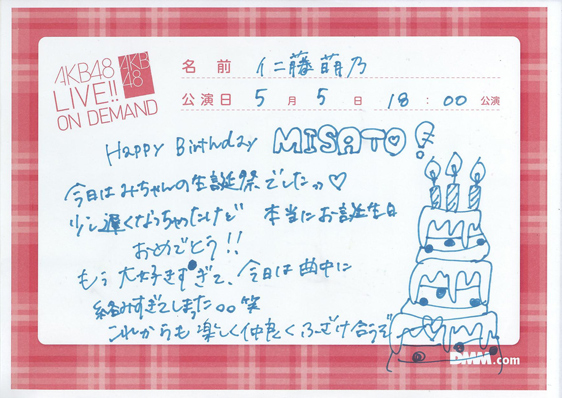 AKB48
LIVE!!
ON DEMAND
AKB
48
名前 仁藤萌乃
公演日 5月5日 18:00公演
Happy Birthday MISATO!
今日はみちゃんの生誕祭でしたっ♡
少し遅くなっちゃったけど 本当にお誕生日
おめでとう!!
もう大好きすぎて、今日は曲中に
絡みすぎてしまった。。笑
これからも楽しく仲良くふざけ合うぞ
DMM.com